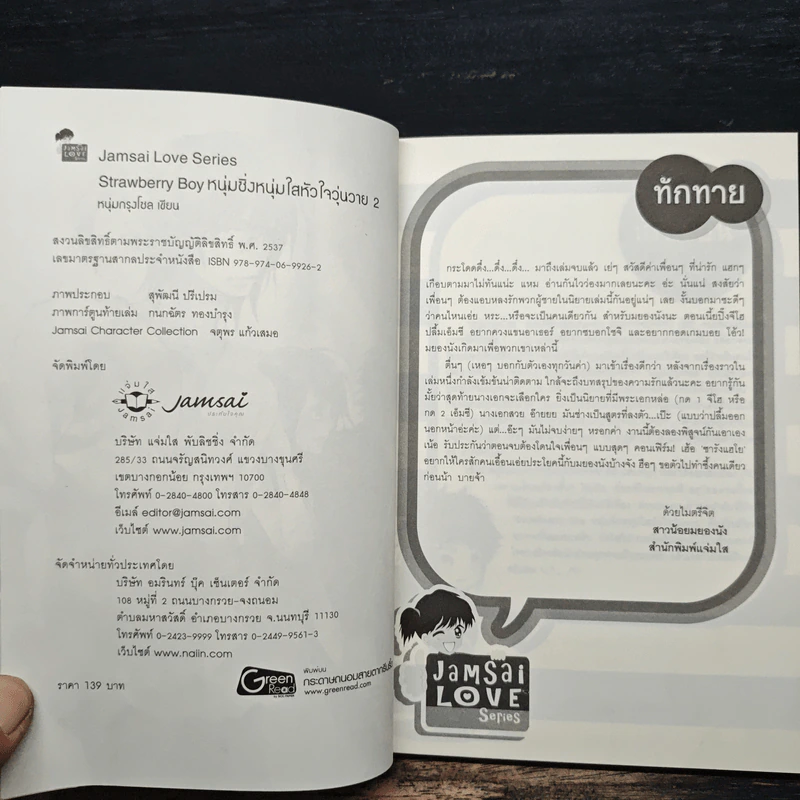 JAMSAI
LOVE
Series
Jamsai Love Series
Strawberry Boy หนุ่มซิ่งหนุ่มใสหัวใจวุ่นวาย 2
หนุ่มกรุงโซล เขียน
สงวนลิขสิทธิ์ตามพระราชบัญญัติลิขสิทธิ์ พ.ศ. 2537
เลขมาตรฐานสากลประจำหนังสือ ISBN 978-974-06-9926-2
ภาพประกอบ สุพัฒนี ปรีเปรม
ภาพการ์ตูนท้ายเล่ม กนกฉัตร ทองบำรุง
Jamsai Character Collection จตุพร แก้วเสมอ
จัดพิมพ์โดย
แจ่มใส
jamsai
jamsai
บริษัท แจ่มใส พับลิชชิ่ง จำกัด
285/33 ถนนจรัญสนิทวงศ์ แขวงบางขุนศรี
เขตบางกอกน้อย กรุงเทพฯ 10700
โทรศัพท์ 0-2840-4800 โทรสาร 0-2840-4848
อีเมล์ editor@jamsai.com
เว็บไซต์ www.jamsai.com
จัดจำหน่ายทั่วประเทศโดย
บริษัท อมรินทร์ บุ๊ค เซ็นเตอร์ จำกัด
108 หมู่ที่ 2 ถนนบางกรวย-จงถนอม
ตำบลมหาสวัสดิ์ อำเภอบางกรวย จ.นนทบุรี 11130
โทรศัพท์ 0-2423-9999 โทรสาร 0-2449-9561-3
เว็บไซต์ www.naiin.com
ราคา 139 บาท
Green
Read
พิมพ์บน
กระดาษถนอมสายตากรีนรี้ด
www.greenread.com
ทักทาย
กระโดดดึ๋ง...ดึ๋ง...ดึ๋ง... มาถึงเล่มจบแล้ว เย่ๆ สวัสดีค่าเพื่อนๆ ที่น่ารัก แฮกๆ
เกือบตามมาไม่ทันแน่ะ แหม อ่านกันไวว่องมากเลยนะคะ อ๊ะ นั่นแน่ สงสัยว่า
เพื่อนๆ ต้องแอบหลงรักพวกผู้ชายในนิยายเล่มนี้กันอยู่แน่ๆ เลย งั้นบอกมาซะดีๆ
ว่าคนไหนเอ่ย หระ...หรือจะเป็นคนเดียวกัน สำหรับมยองนังนะ ตอนเนี้ยปิ๊งจีโฮ
ปลื้มเอ็มซี อยากควงแขนอาเธอร์ อยากซบอกโซจิ และอยากกอดเกมบอย โอ๊ว!
มยองนังเกิดมาเพื่อพวกเขาเหล่านี้
ตื่นๆ (เหอๆ บอกกับตัวเองทุกวันค่า) มาเข้าเรื่องดีกว่า หลังจากเรื่องราวใน
เล่มหนึ่งกำลังเข้มข้นน่าติดตาม ใกล้จะถึงบทสรุปของความรักแล้วนะคะ อยากรู้กัน
มั้ยว่าสุดท้ายนางเอกจะเลือกใคร ยิ่งเป็นนิยายที่มีพระเอกหล่อ (กด 1 จีโฮ หรือ
กด 2 เอ็มซี) นางเอกสวย อ้ายยย มันช่างเป็นสูตรที่ลงตัว...เป๊ะ (แบบว่าปลื้มออก
นอกหน้าอ่ะค่ะ) แต่...อ๊ะๆ มันไม่จบง่ายๆ หรอกค่า งานนี้ต้องลองพิสูจน์กันเอาเอง
เน้อ รับประกันว่าตอนจบต้องโดนใจเพื่อนๆ แบบสุดๆ คอนเฟิร์ม! เฮ้อ 'ซารังแฮโย'
อยากให้ใครสักคนเอื้อนเอ่ยประโยคนี้กับมยองนังบ้างจัง ฮือๆ ขอตัวไปทำซึ้งคนเดียว
ก่อนน้า บายจ้า
ด้วยไมตรีจิต
สาวน้อยมยองนัง
สำนักพิมพ์แจ่มใส
JAMSAI
LOVE
Series